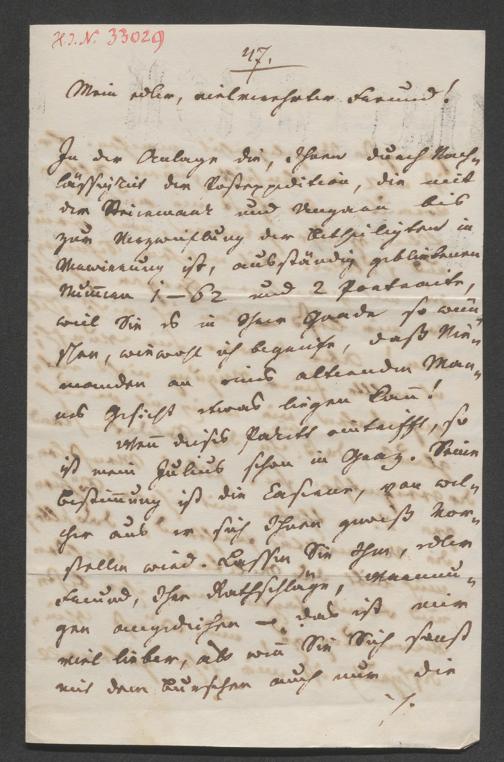 H.I.N. 33029
47.
Mein edler, vielverehrter Freund!
In der Anlage die, Ihnen durch Nach-
lässigkeit der Postexpedition, die mit
der Steiermark und Ungarn bis
zur Verzweiflung der Betheiligten in
Verwirrung ist, ausständig gebliebenen
Nummern 1–62 und 2 Portraite,
weil Sie es in Ihrer Güte so wün-
schen, wiewohl ich begreife, daß Nie-
manden an eines alternden Man-
nes Gesicht etwas liegen kann!
Wenn dieses Packet eintrifft, so
ist mein Julius schon in Graz. Seine
Bestimmung ist die Caserne, von wel-
cher aus er sich Ihnen gewiß vor-
stellen wird. Lassen Sie Ihm, edler
Freund, Ihre Rathschläge, Warnun-
gen angedeihen – das ist mir
viel lieber, als wenn Sie Sich sonst
mit dem Burschen auch nur die
./.